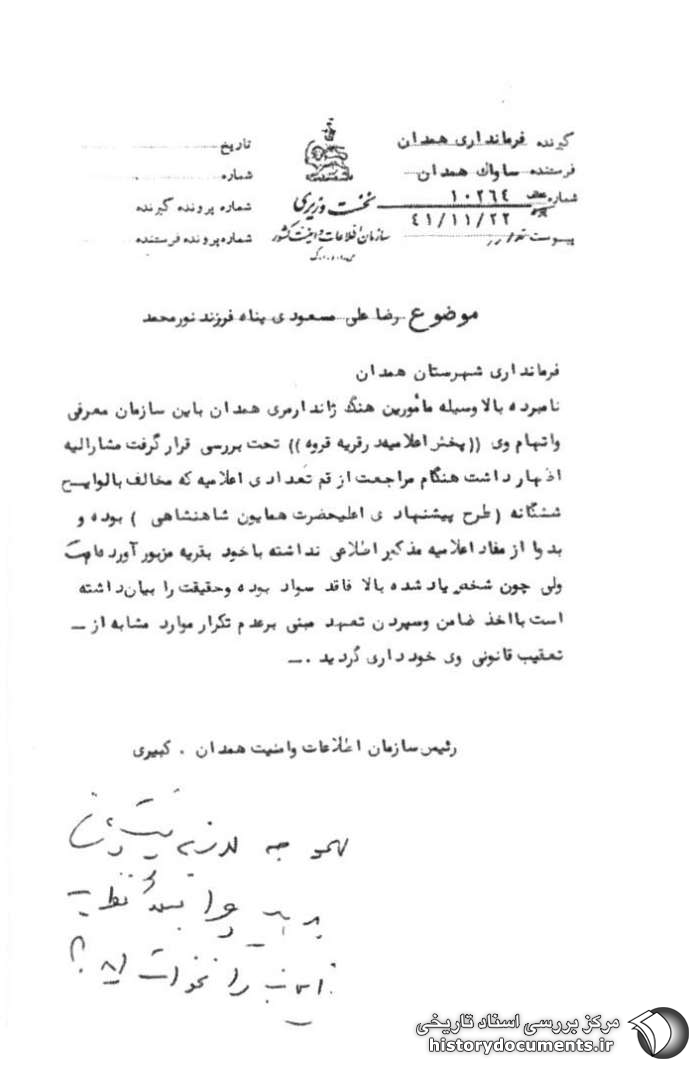 گیرنده فرمانداری همدان
فرستنده ساواک همدان
شماره ۱۰۲۶۴
۴۱/۱۱/۲۲
پیوست ندارد
نخست وزیری
سازمان اطلاعات و امنیت کشور
س.ا.و.ا.ک
تاریخ
شماره
شماره پرونده گیرنده
شماره پرونده فرستنده
موضوع رضا علی مسعودی پناه فرزند نورمحمد
فرمانداری شهرستان همدان
نامبرده بالا وسیله مأمورین هنگ ژاندارمری همدان باین سازمان معرفی
واتهام وی ((پخش اعلامیه در قریه قروه)) تحت بررسی قرار گرفت مشارالیه
اظهار داشت هنگام مراجعت از قم تعدادی اعلامیه که مخالف بالوایح
ششگانه (طرح پیشنهادی اعلیحضرت همایون شاهنشاهی ) بوده و
بدوا از مفاد اعلامیه مذکور اطلاعی نداشته باخود بقریه مزبور آورده است
ولی چون شخص یاد شده بالا فاقد سواد بوده وحقیقت را بیان داشته
است بااخذ ضامن وسپردن تعهد مبنی برعدم تکرار موارد مشابه از ــ
تعقیب قانونی وی خودداری گردید .ــ
رئیس سازمان اطلاعات وامنیت همدان . کبیری
را نخواسته اند؟
مرکز بررسی اسناد تاریخی
historydocuments.ir